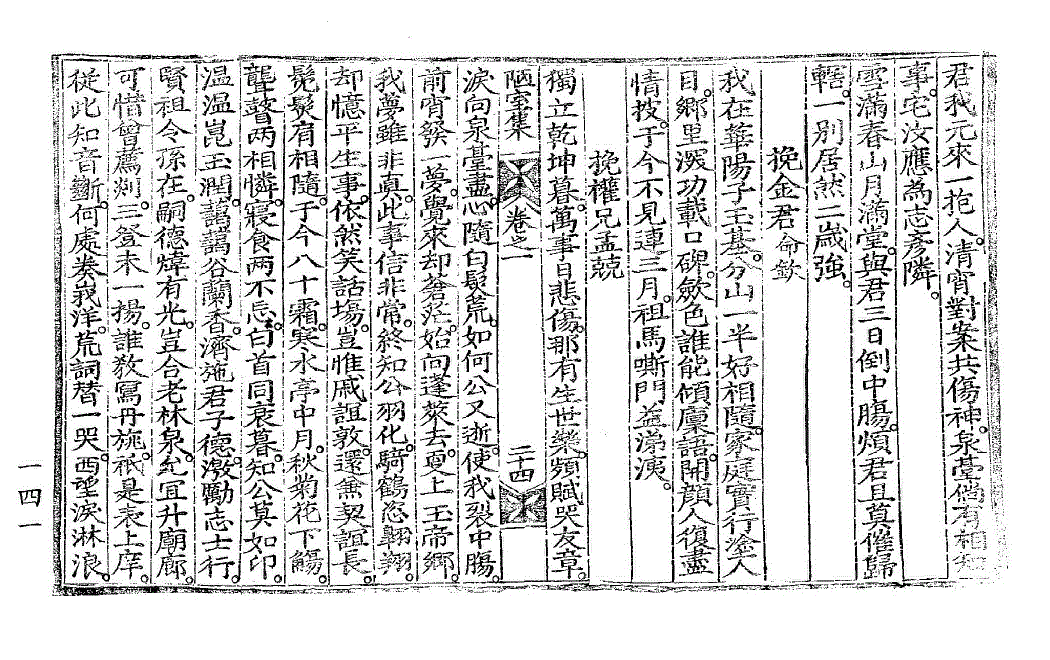 君我元來一抱人。淸宵對案共傷神。泉臺倘有相知
事。宅汝應為志彦隣。
雪滿春山月滿堂。與君三日倒中膓。煩君且莫催歸
轄。一別居然二歲強。
挽金君命欽
我在華陽子玉基。分山一半好相隨。家庭實行塗人
目。鄕里深功載口碑。歛色誰能傾廩語。開顔人復盡
情技。于今不見連三月。祖馬嘶門益涕洟。
挽權兄孟兢
獨立乾坤暮。萬事日悲傷。那有生世樂。頻賦哭友章。
陋窩集 卷之一 三十四
淚向泉臺盡。心隨白髮荒。如何公又逝。使我裂中膓。
前宵發一夢。覺來却蒼茫。始向蓬萊去。更上玉帝鄕。
我夢雖非真。此事信非常。終知公羽化。騎鶴忽翺翔。
却憶平生事。依然笑話場。豈惟戚誼敦。還兼契誼長。
髧髮有相隨。于今八十霜。寒水亭中月。秋菊花下觴。
聾瞽両相憐。寢食両不忘。白首同衰暮。知公莫如卬。
温温崑玉潤。藹藹谷蘭香。濟施君子德。激勵志士行。
賢祖令孫在。嗣德煒有光。豈合老林泉。允宜升廟廊。
可惜曾薦剡。三登未一揚。誰敎寫丹旐。祇是表上庠。
從此知音斷。何處奏峩洋。荒詞替一哭。西望淚淋浪。
一四一